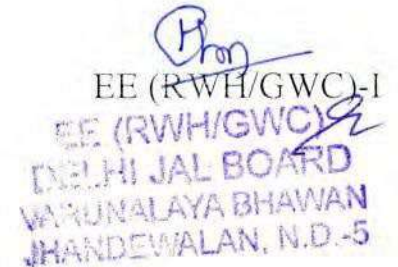 EE (RWH/GWC)-I
EE (RWH/GWC)
DELHI JAL BOARD
VARUNALAYA BHAWAN
JHANDEWALAN, N.D.-5